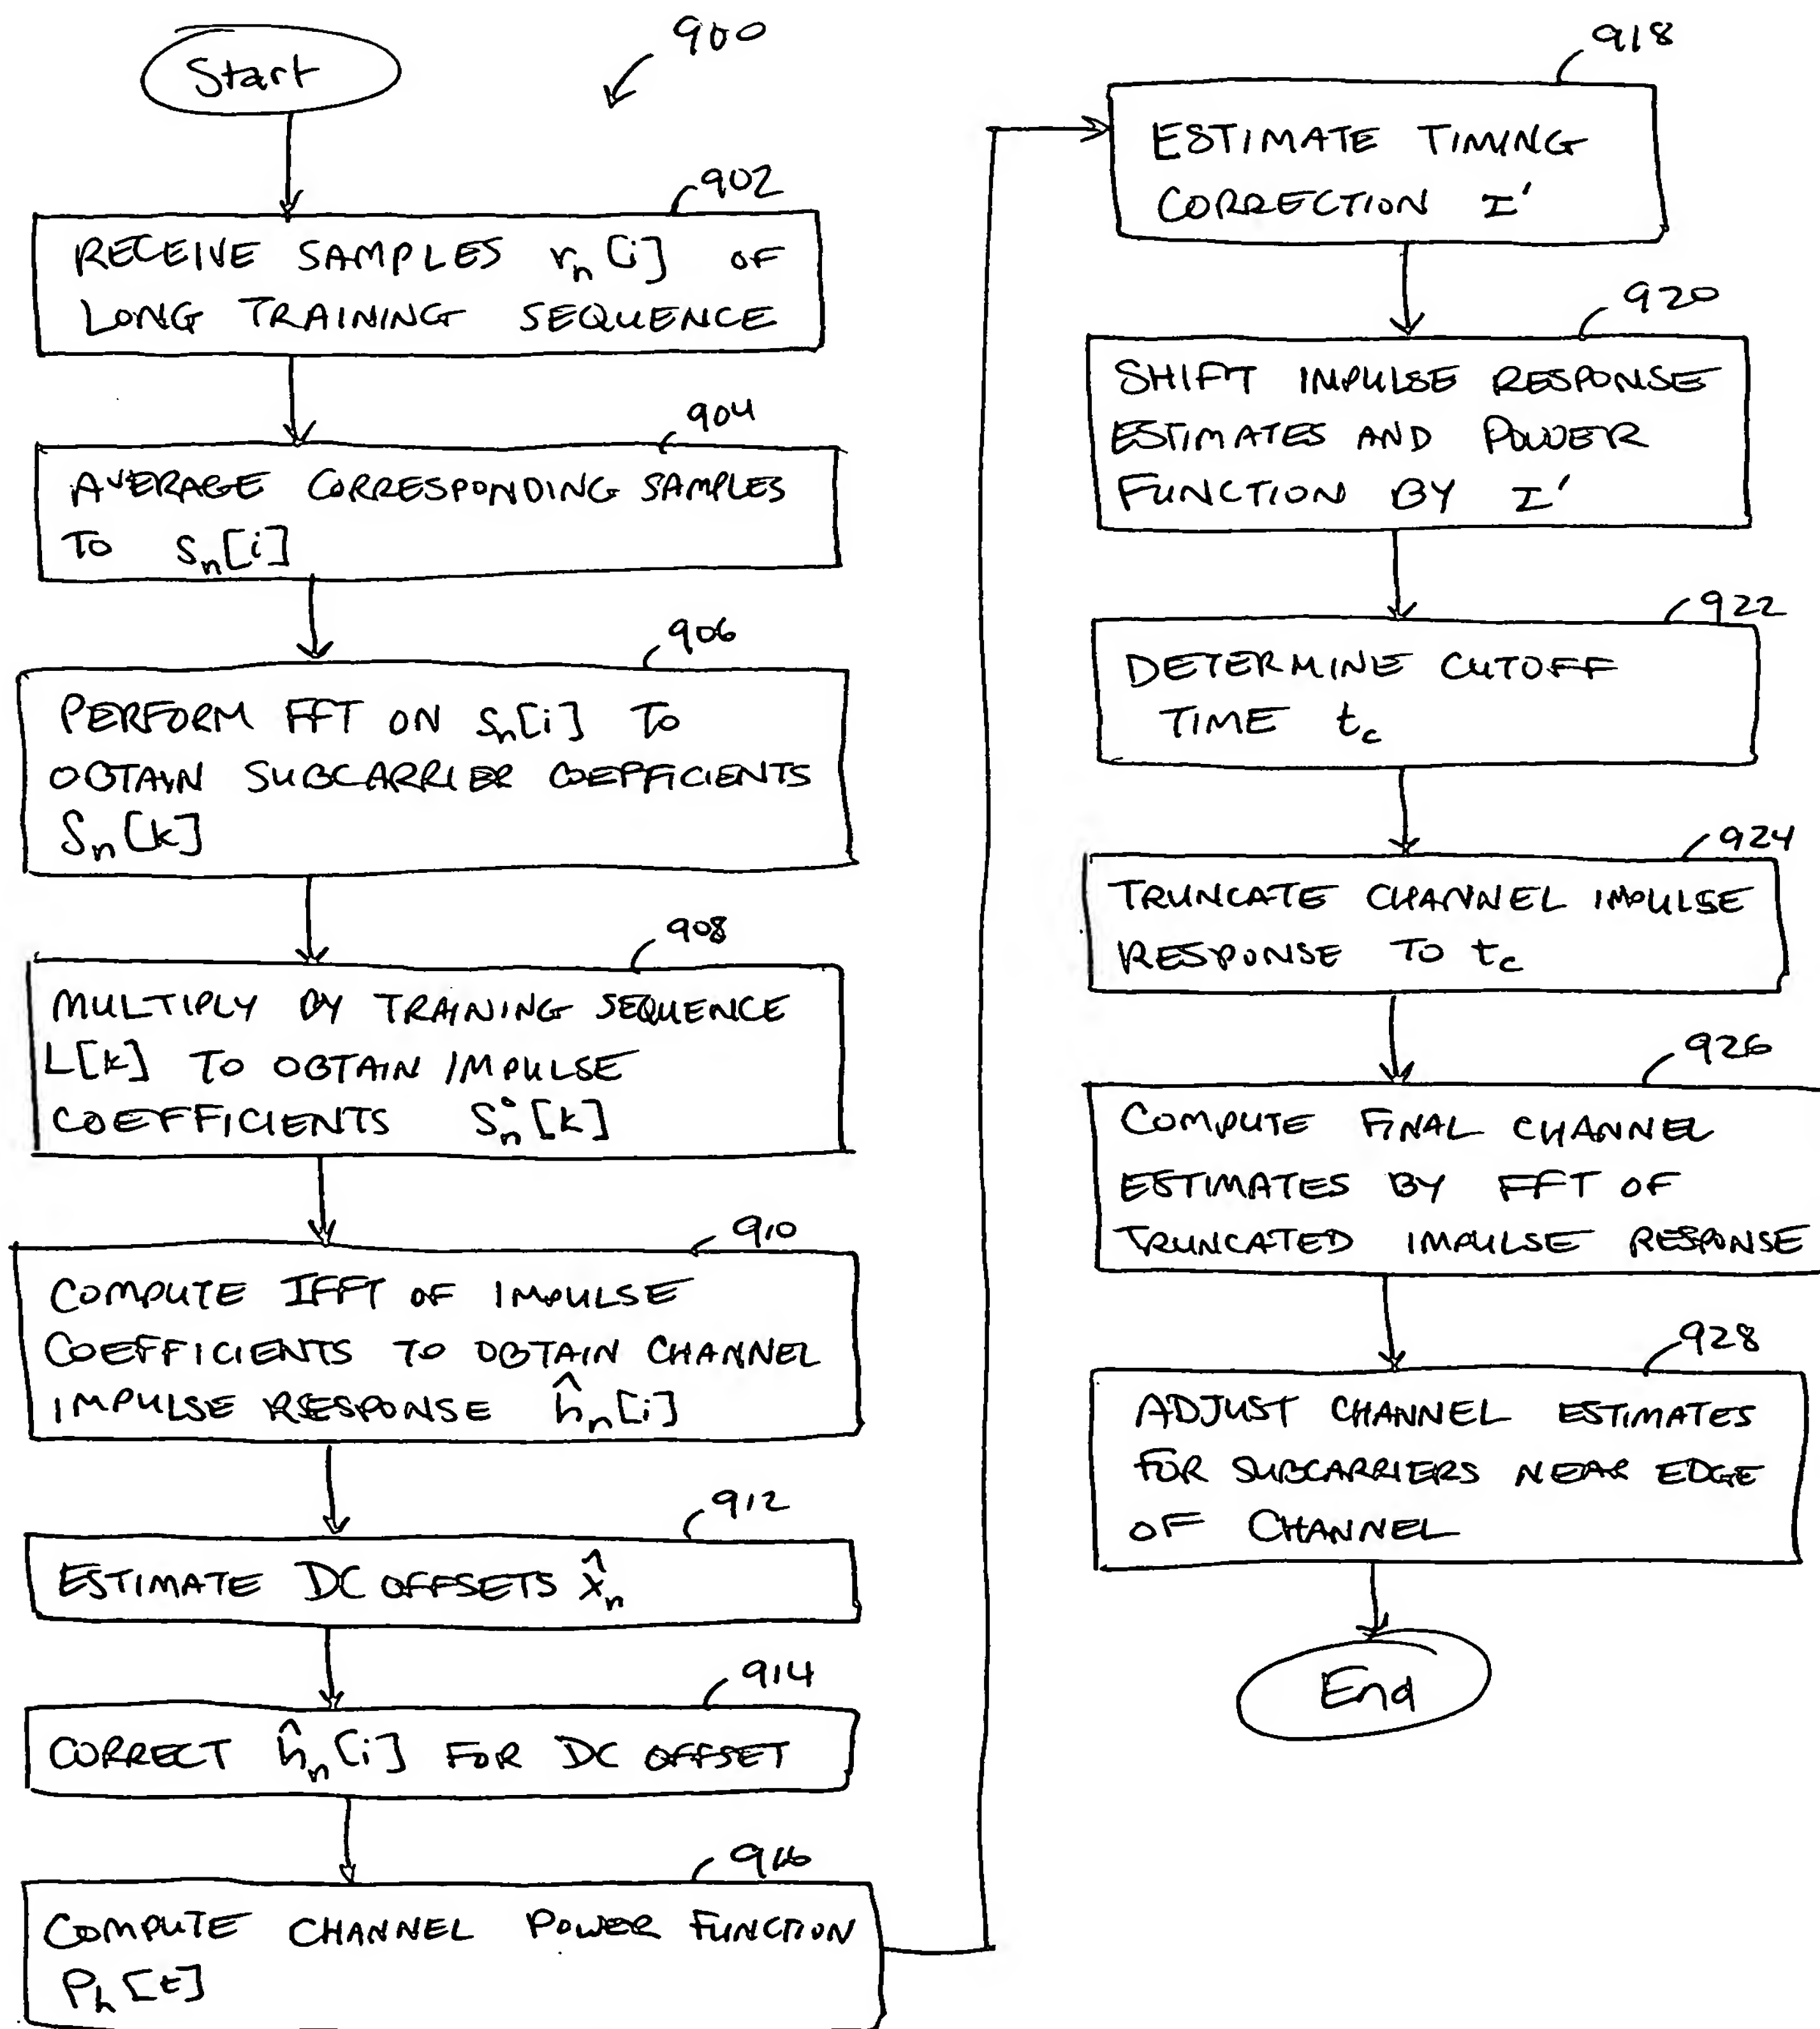 Start
900
902
RECEIVE SAMPLES rₙ[i] OF
LONG TRAINING SEQUENCE
904
AVERAGE CORRESPONDING SAMPLES
TO sₙ[i]
906
PERFORM FFT ON sₙ[i] TO
OBTAIN SUBCARRIER COEFFICIENTS
Sₙ[k]
908
MULTIPLY BY TRAINING SEQUENCE
L[k] TO OBTAIN IMPULSE
COEFFICIENTS S°ₙ[k]
910
COMPUTE IFFT OF IMPULSE
COEFFICIENTS TO OBTAIN CHANNEL
IMPULSE RESPONSE ĥₙ[i]
912
ESTIMATE DC OFFSETS x̂ₙ
914
CORRECT ĥₙ[i] FOR DC OFFSET
916
COMPUTE CHANNEL POWER FUNCTION
Pₕ[t]
918
ESTIMATE TIMING
CORRECTION I'
920
SHIFT IMPULSE RESPONSE
ESTIMATES AND POWER
FUNCTION BY I'
922
DETERMINE CUTOFF
TIME t_c
924
TRUNCATE CHANNEL IMPULSE
RESPONSE TO t_c
926
COMPUTE FINAL CHANNEL
ESTIMATES BY FFT OF
TRUNCATED IMPULSE RESPONSE
928
ADJUST CHANNEL ESTIMATES
FOR SUBCARRIERS NEAR EDGE
OF CHANNEL
End